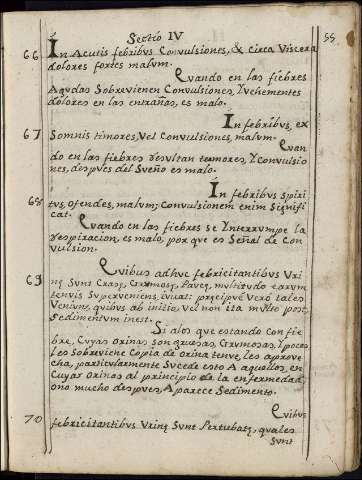 Sectio IV
55
66 In Acutis febribus Convulsiones, & circa Viscera
dolores fortes malum.
Quando en las fiebres
Agudas Sobrevienen Convulsiones, y vehementes
dolores en las entrañas, es malo.
In febribus, ex
67 Somnis timores, Vel Convulsiones, malum.
Quan
do en las fiebres resultan temores, y Convulsio
nes, despues del Sueño es malo.
In febribus spiri
68 tus, ofendes, malum; Convulsionem enim Signifi
cat.
Quando en las fiebres se Ynterrumpe la
respiracion, es malo, por que es Señal de Con
vulsion.
Quibus adhuc febricitantibus Vri
69 nę Sunt Crasę, Grumosę, Paucę, multitudo earum
tenuis Superveniens, iuuat: preçipuè Verò tales
Veniunt, quibus ab initio, vel non ita multo post
Sedimentum inest.
Si alos que estando con fie
bre, Cuyas orinas, son gruesas, Grumosas, y pocas
les Sobreviene Copia de orina tenue, les aprove
cha, particularmente Sucede esto A aquellos, en
Cuyas orinas al principio de la enfermedad,
ono mucho despues, Aparece Sedimento.
Quibus
70 febricitantibus Vrinę Sunt Pertubatę, quales
Sunt